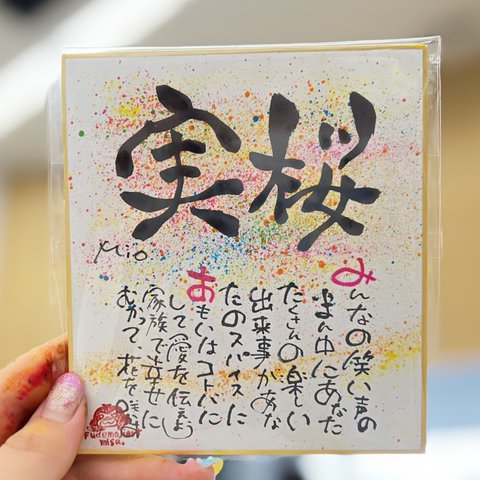 実桜
Mio
みんなの笑い声の
まん中にあなた
たくさんの楽しい
出来事があな
たのスパイスに
おもいはコトバに
して愛を伝えよう
家族で幸せに
むかって、花を
misa.